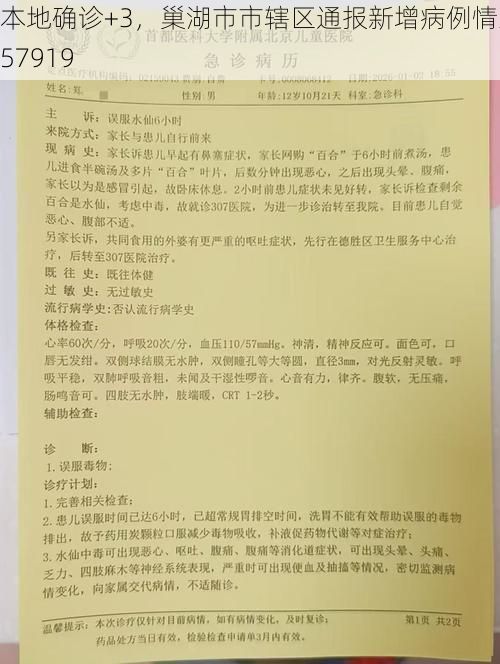 本地确诊+3，巢湖市市辖区通报新增病例情
57919
首都医科大学附属北京儿童医院
急诊病历
2026-01-02 18:55
姓名:郑
性别:男
年龄:12岁10月21天 科室:急诊科
主 诉:误服水仙6小时
来院方式:家长与患儿自行前来
现 病 史:家长诉患儿早起有鼻塞症状，家长网购“百合”于6小时前煮汤，患
儿进食半碗汤及多片“百合”叶片，后数分钟出现恶心，之后出现头晕、腹痛，
家长以为是感冒引起，故卧床休息。2小时前患儿症状未见好转，家长诉检查剩余
百合是水仙，考虑中毒，故就诊307医院，为进一步诊治转至我院。目前患儿自觉
恶心、腹部不适。
另家长诉，共同食用的外婆有更严重的呕吐症状，先行在德胜区卫生服务中心治
疗，后转至307医院治疗。
既 往 史:既往体健
过 敏 史:无过敏史
流行病学史:否认流行病学史
体格检查:
心率60次/分，呼吸20次/分，血压110/57mmHg。神清，精神反应可。面色可。口
唇无发绀。双侧球结膜无水肿，双侧瞳孔等大等圆，直径3mm，对光反射灵敏。呼
吸平稳，双肺呼吸音粗，未闻及干湿性啰音。心音有力，律齐。腹软，无压痛，
肠鸣音可。四肢无水肿，肢端暖，CRT 1-2秒。
辅助检查:
诊 断:
1.误服毒物;
诊疗计划:
1.完善相关检查;
2.患儿误服时间已达6小时，已超常规胃排空时间，洗胃不能有效帮助误服的毒物
排出，故予药用炭颗粒口服减少毒物吸收，补液促药物代谢等对症治疗;
3.水仙中毒可出现恶心、呕吐、腹痛、腹痛等消化道症状，可出现头晕、头痛、
乏力、四肢麻木等神经系统表现，严重时可出现便血及抽搐等情况，密切监测病
情变化，向家属交代病情，不适随诊。
温馨提示:本次诊疗仅针对目前病情，如有病情变化，及时复诊;
药品处方当日有效，检验检查申请单3月内有效。
第1页 共2页